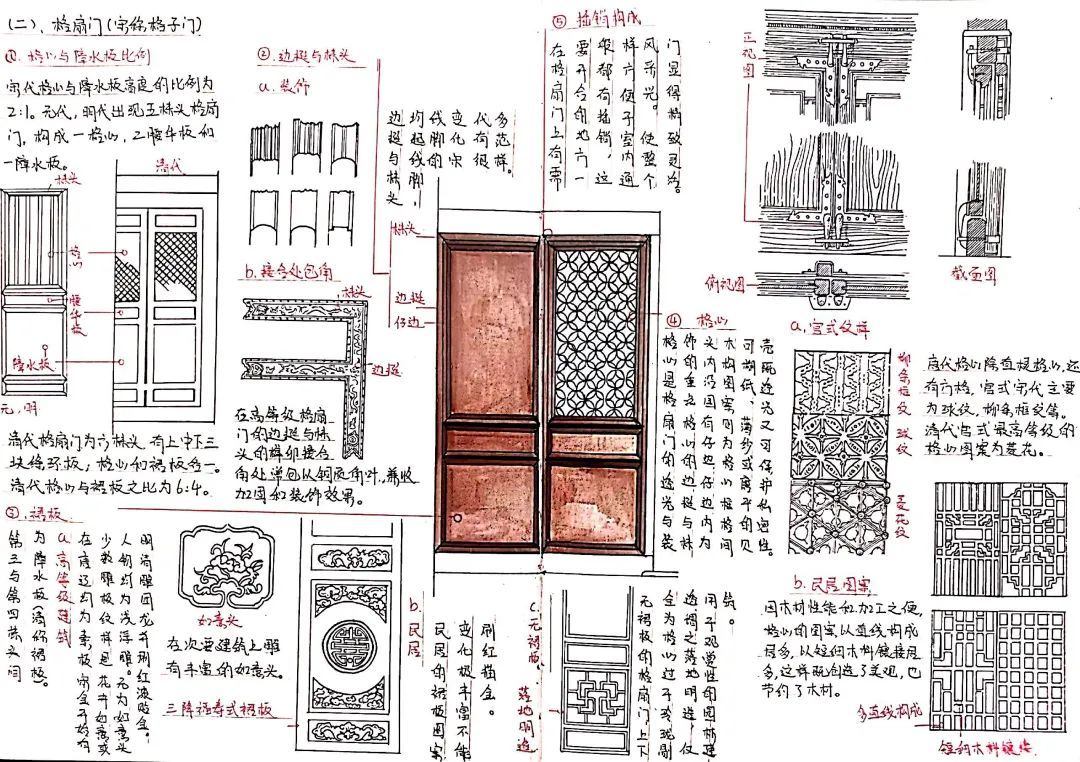 (二)、格扇门(宋称格子门)
①.格心与障水板比例
宋代格心与障水板高度的比例为
2:1。元代,明代出现五抹头格扇
门,构成一格心,二腰华板和
一障水板。
抹头
格心
腰华板
障水板
元,明
清代
清代格扇门为六抹头,有上中下三
块绦环板,格心和裙板各一。
清代格心与裙板之比为6:4。
②.边梃与抹头
a.装饰
边梃与抹头
均起线脚,
线脚的
变化宋
代有很
多范样。
b.接合处包角
抹头
边梃
在高等级格扇
门的边梃与抹
头的榫卵接合
角处常包以铜质角叶,兼收
加固和装饰效果。
抹头
边梃
仔边
③.裙板
第三与第四抹头间
为障水板(清称裙板。
a.高等级建筑
在唐辽均为素板,宋金开始有
少数雕纹样,题花卉如意或
人物,均为浅浮雕。元为如意头
明清雕团龙并刷红漆贴金。
如意头
在次要建筑上雕
有丰富的如意头。
三障福寿式裙板
b.民居
民居的裙板图案
变化极丰富,不能
刷红描金。
c.无裙板,落地明造
无裙板的格扇门,上下
全为格心,过于玲珑剔
透,谓之落地明造,仅
用于观赏性的园林建
筑。
④ 格心
格心是格扇门的透光与装
饰的重点,格心的边梃与抹
头内沿围有仔边,仔边内为
木构图案,则为格心棂格,间
可糊纸、薄纱或磨平的贝
壳,既透光又可保护私密性。
a.宫式纹样
柳条框纹
球纹
菱花纹
唐代格心除直棂格心,还
有方格,宫式宋代主要
为球纹,柳条框纹等。
清代宫式最高等级的
格心图案为菱花。
b.民居图案
因木材性能和加工之便,
格心的图案以直线构成
居多,以短细木料镶接居
多,这样既创造了美观,也
节约了木材。
多直线构成
短细木料镶接
⑤ 插销构成
在格扇门上有需
要开合的地方一
般都有插销,这
样方便了室内通
风采光。使整个
门显得精致灵活。
正视图
俯视图
截面图